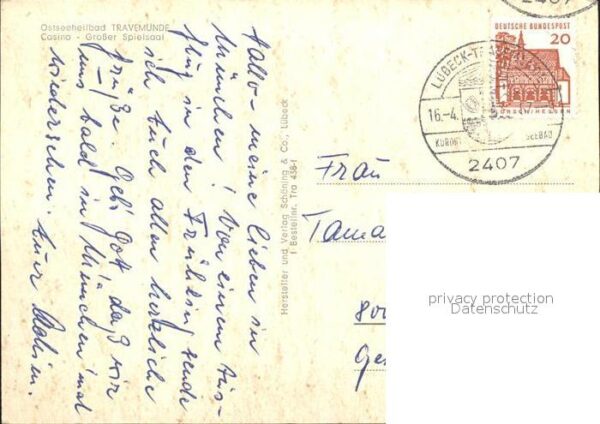 Ostseeheilbad TRAVEMÜNDE
Casino - Großer Spielsaal
Hallo - meine lieben in
München! Von einem Aus-
flug in den Frühling sende
ich Euch allen herzliche
Grüße. Geb' Gott daß wir
uns bald in München mal
wiedersehen. Eure
Hersteller und Verlag Schöning & Co., Lübeck
Bestellnr. Tra 438
2407
DEUTSCHE BUNDESPOST
20
LORSCH/HESSEN
LÜBECK-TRAVEMÜNDE
16.-4.
KURORT SEEBAD
2407
Frau
Tama
800
Ge
privacy protection
Datenschutz